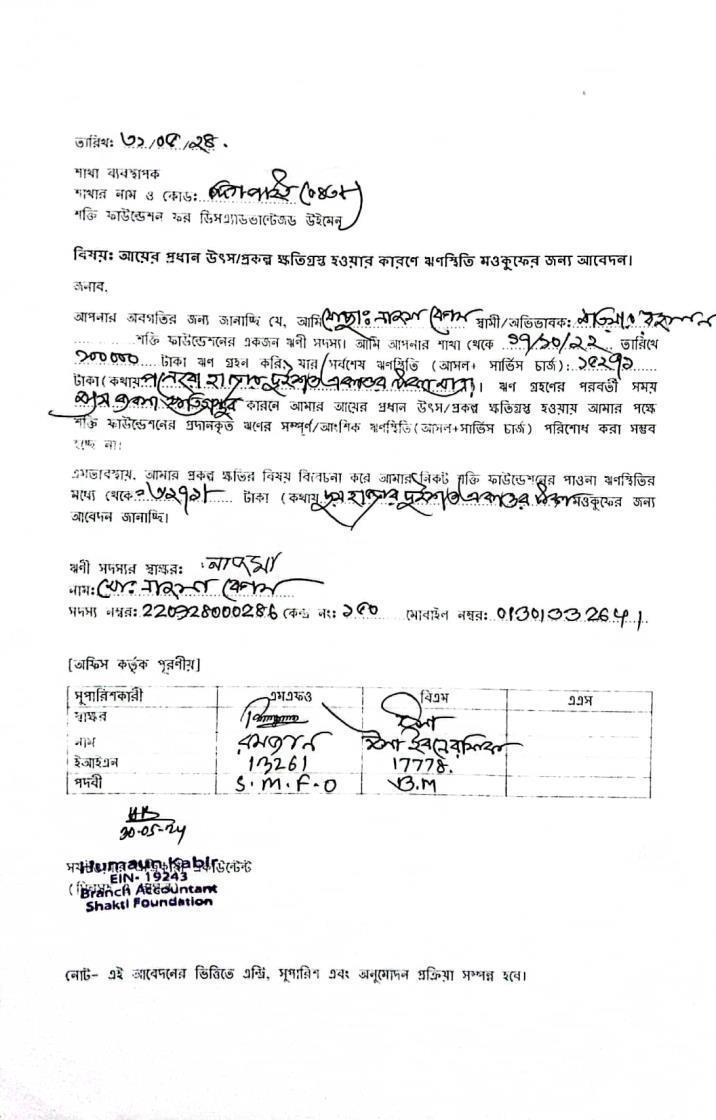 তারিখ: ৩১/০৫/২৪.
শাখা ব্যবস্থাপক
শাখার নাম ও কোড: (০৪৩৮)
শক্তি ফাউন্ডেশন ফর ডিসএ্যাডভান্টেজড উইমেন
বিষয়: আয়ের প্রধান উৎস/প্রকল্প ক্ষতিগ্রস্ত হওয়ার কারণে ঋণস্থিতি মওকুফের জন্য আবেদন।
জনাব,
আপনার অবগতির জন্য জানাচ্ছি যে, আমি মোছাঃ নাজমা বেগম স্বামী/অভিভাবক:
শক্তি ফাউন্ডেশনের একজন ঋণী সদস্য। আমি আপনার শাখা থেকে ১৭/১০/২২ তারিখে
১০০০০০ টাকা ঋণ গ্রহন করি; যার সর্বশেষ ঋণস্থিতি (আসল+ সার্ভিস চার্জ): ১৫২৭১
টাকা (কথায় পনেরো হাজার দুইশত একাত্তর টাকা মাত্র)। ঋণ গ্রহণের পরবর্তী সময়
কারনে আমার আয়ের প্রধান উৎস/প্রকল্প ক্ষতিগ্রস্ত হওয়ায় আমার পক্ষে
শক্তি ফাউন্ডেশনের প্রদানকৃত ঋণের সম্পূর্ণ/আংশিক ঋণস্থিতি (আসল+সার্ভিস চার্জ) পরিশোধ করা সম্ভব
হচ্ছে না।
এমতাবস্থায়, আমার প্রকল্প ক্ষতির বিষয় বিবেচনা করে আমার নিকট শক্তি ফাউন্ডেশনের পাওনা ঋণস্থিতির
মধ্যে থেকে টাকা (কথায় হাজার দুইশত একাত্তর টাকা মওকুফের জন্য
আবেদন জানাচ্ছি।
ঋণী সদস্যর স্বাক্ষর: নাজমা
নাম: মোছাঃ নাজমা বেগম
সদস্য নম্বর: 220928000286 কেন্দ্র নং: ১৫০ মোবাইল নম্বর: 01301332641
[অফিস কর্তৃক পূরণীয়]
সুপারিশকারী এমএফও বিএম এএস
স্বাক্ষর
নাম রমজান
ইআইএন 13261 17778.
পদবী S.M.F.O B.M
30-05-24
Humaun Kabir
EIN- 19243
Branch Accountant
Shakti Foundation
নোট- এই আবেদনের ভিত্তিতে এন্ট্রি, সুপারিশ এবং অনুমোদন প্রক্রিয়া সম্পন্ন হবে।